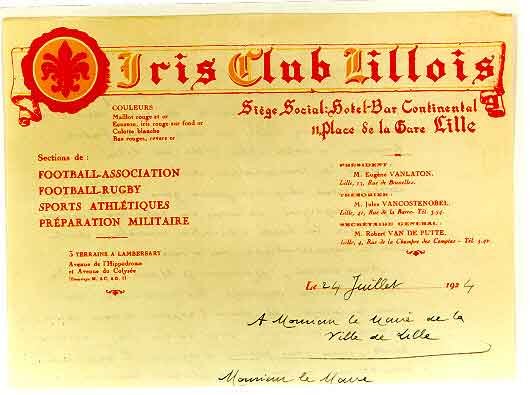 Iris Club Lillois
Siège Social: Hotel-Bar Continental
11, Place de la Gare Lille
COULEURS
Maillot rouge et or
Ecusson, iris rouge sur fond or
Culotte blanche
Bas rouges, revers or
Sections de :
FOOTBALL-ASSOCIATION
FOOTBALL-RUGBY
SPORTS ATHLÉTIQUES
PRÉPARATION MILITAIRE
PRÉSIDENT :
M. Eugène VANLATON.
Lille, 13, Rue de Bruxelles.
TRÉSORIER :
M. Jules VANCOSTENOBEL
Lille, 41, Rue de la Barre. Tél. 3.54.
SECRÉTAIRE GÉNÉRAL :
M. Robert VAN DE PUTTE.
Lille, 4, Rue de la Chambre des Comptes - Tél. 3.41.
3 TERRAINS A LAMBERSART
Avenue de l'Hippodrome
et Avenue du Colysée
Le 24 Juillet 1924
A Monsieur le Maire de la
Ville de Lille
Monsieur le Maire